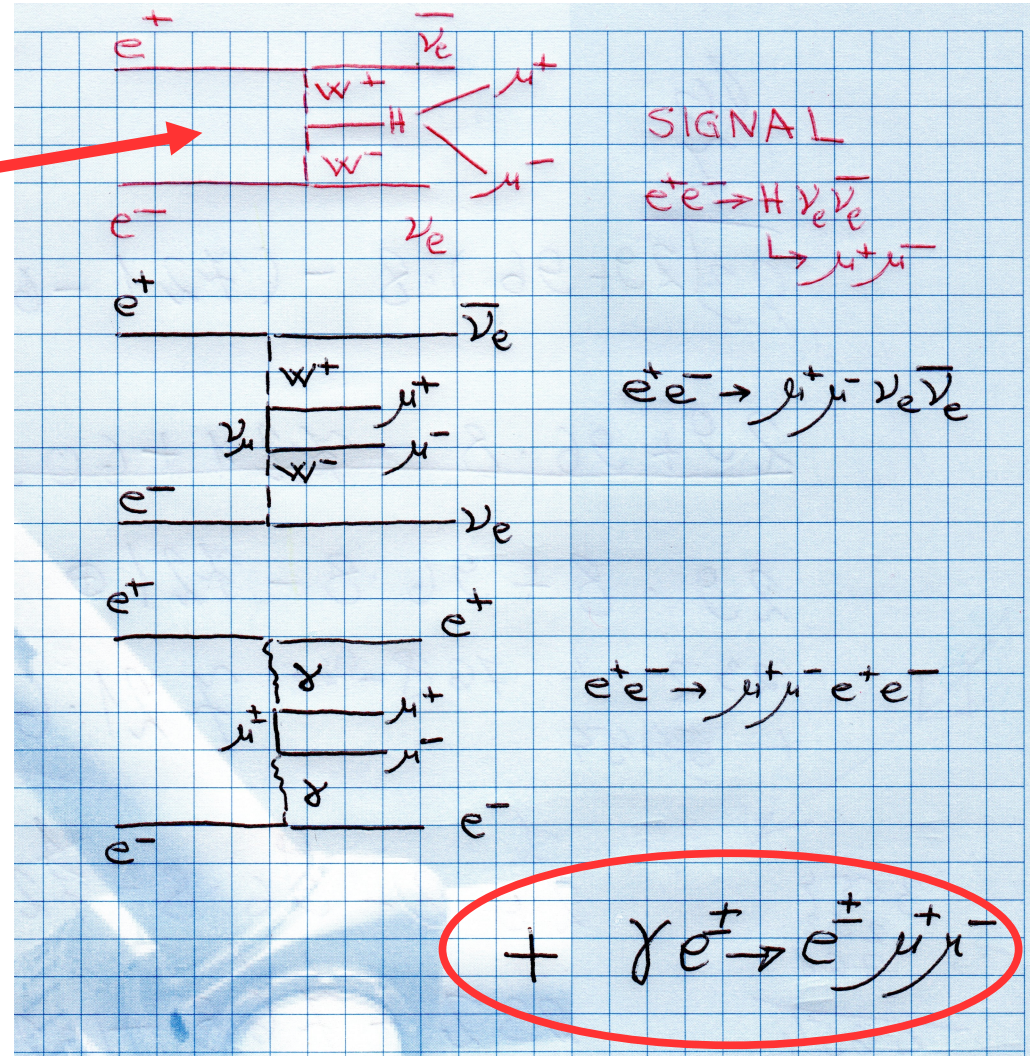 e⁺ ν̄ₑ
W⁺ μ⁺
H
W⁻ μ⁻
e⁻ νₑ
SIGNAL
e⁺e⁻ → H νₑ ν̄ₑ
↳ μ⁺μ⁻
e⁺ ν̄ₑ
W⁺
μ⁺
ν_μ
μ⁻
W⁻
e⁻ νₑ
e⁺e⁻ → μ⁺μ⁻ νₑ ν̄ₑ
e⁺ e⁺
γ
μ⁺
μ^±
μ⁻
γ
e⁻ e⁻
e⁺e⁻ → μ⁺μ⁻ e⁺e⁻
+ γ e^± → e^± μ⁺μ⁻